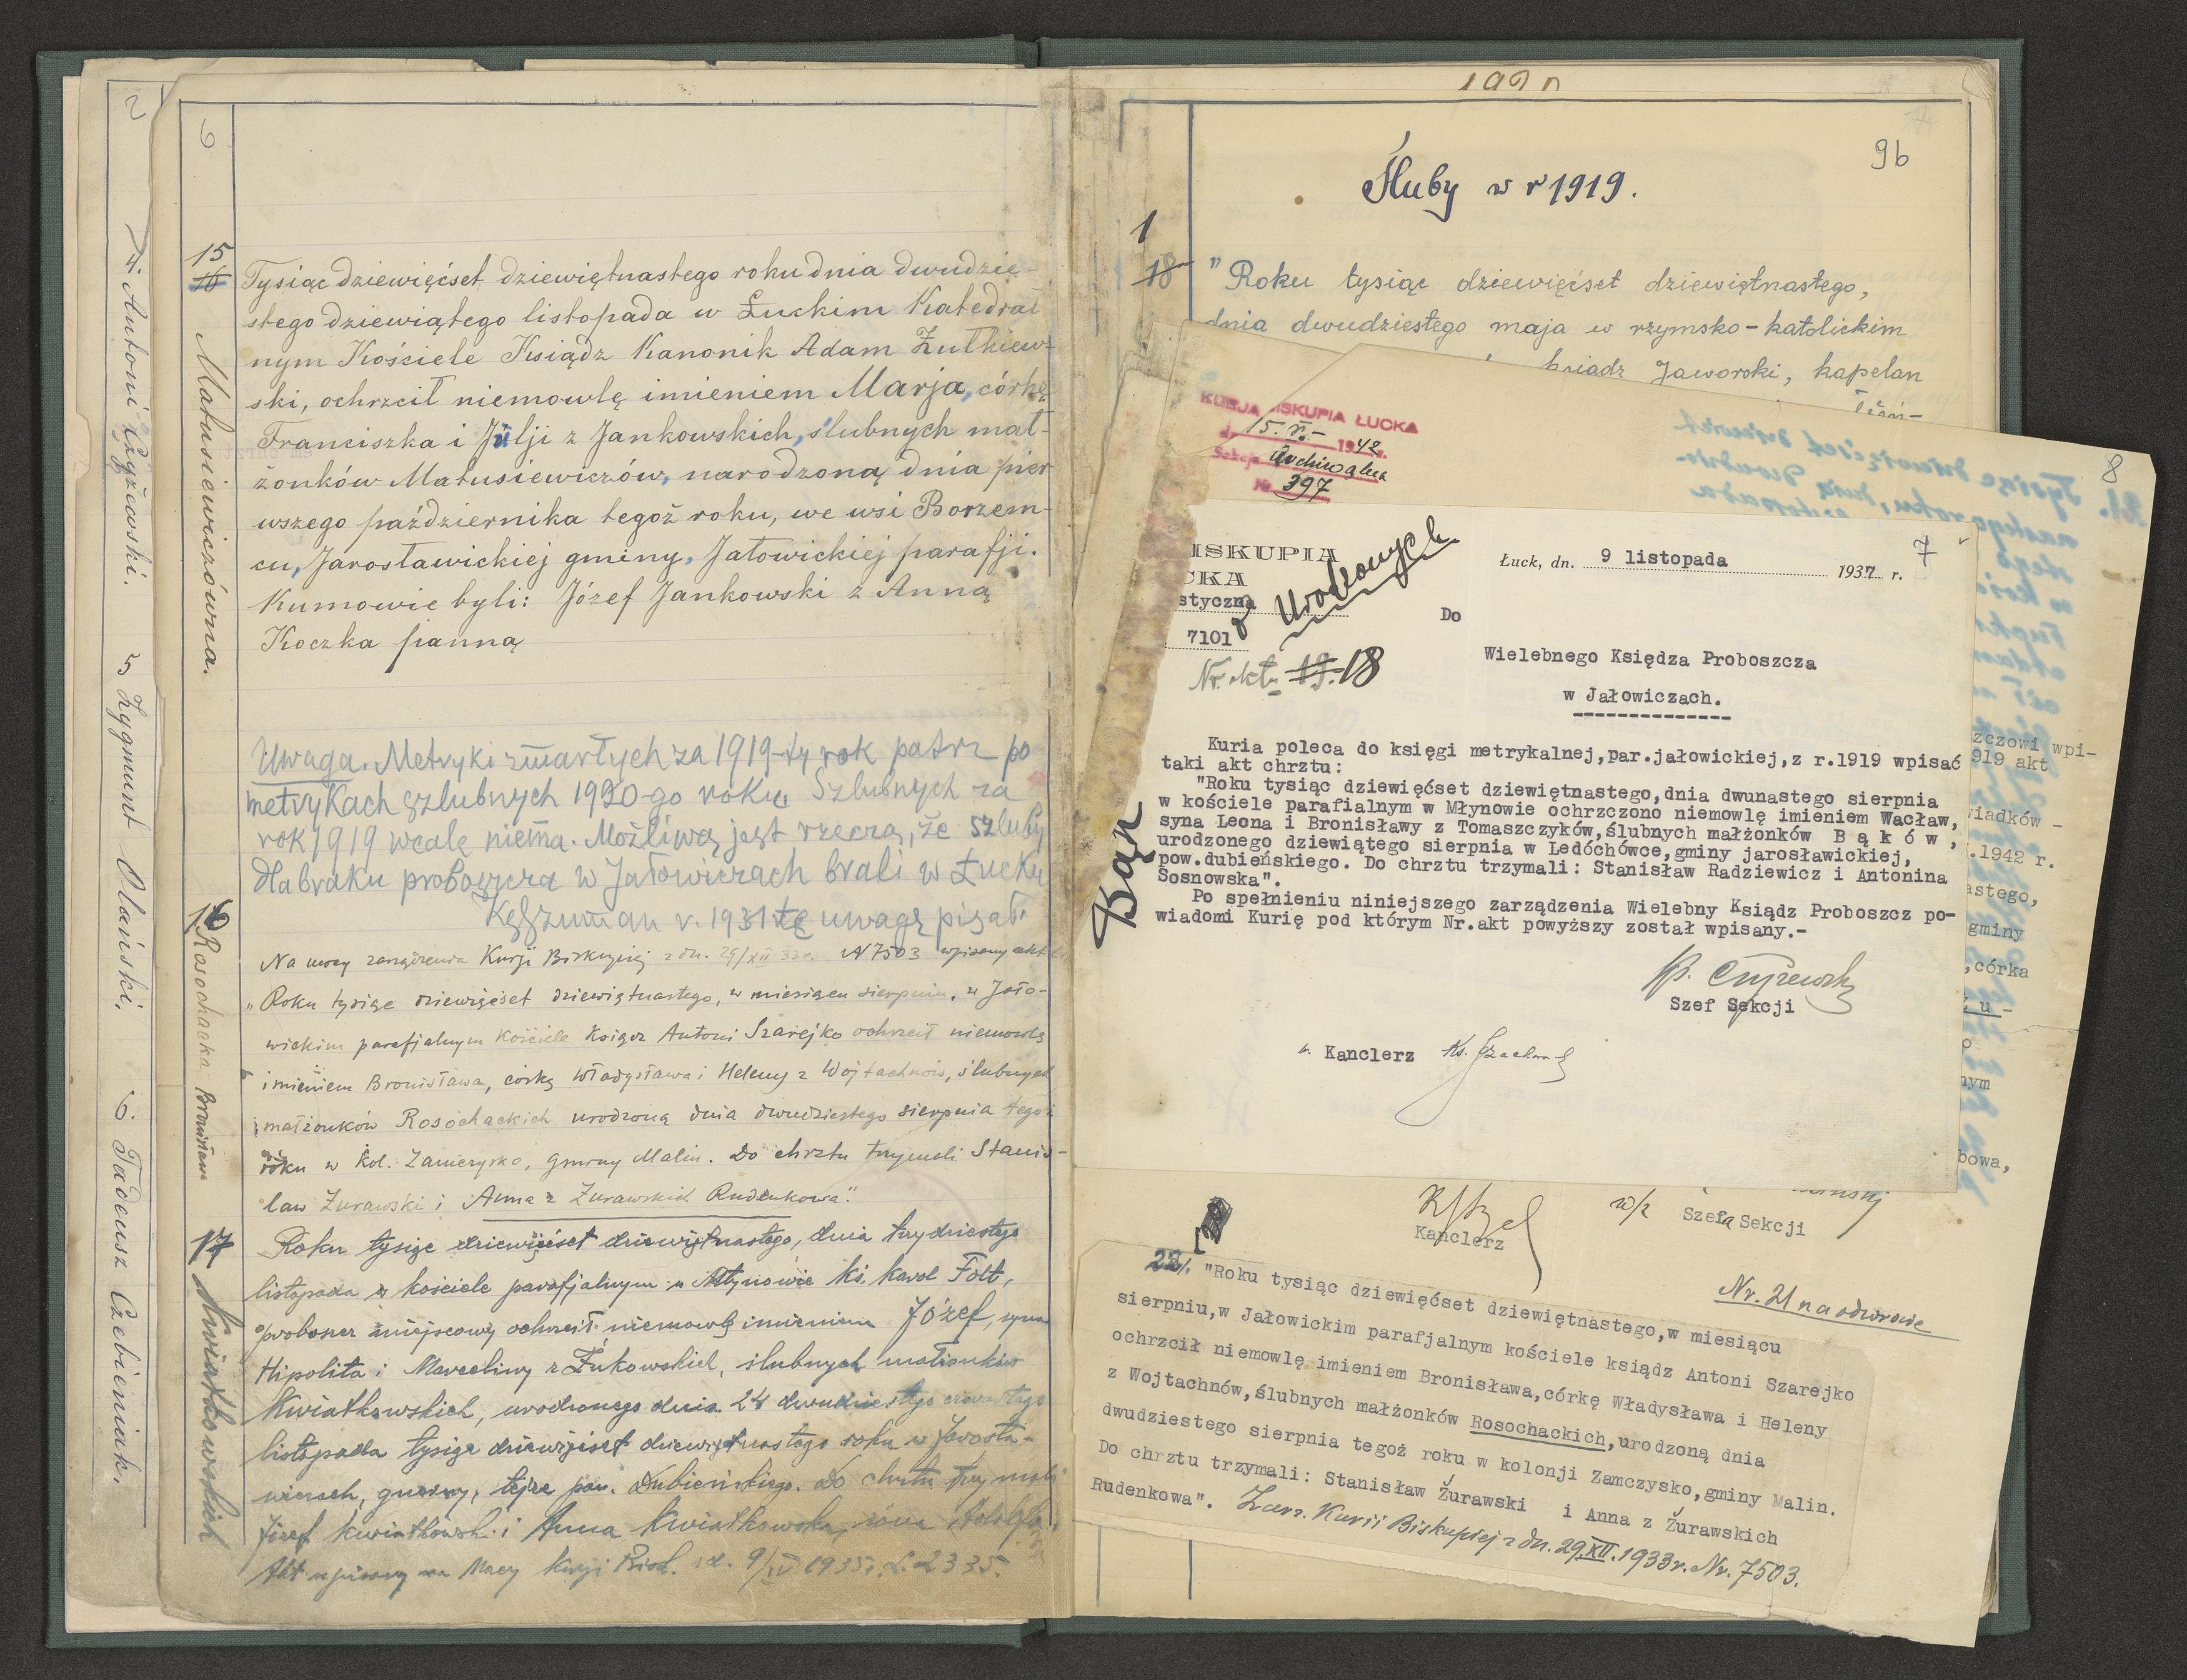 2
4. Antoni Czyżewski.
5 Zygmunt Olański.
6. Tadeusz Czebieniak.
6
15
16
Matusiewiczówna.
Tysiąc dziewięćset dziewiętnastego roku dnia dwudzie-
stego dziewiątego listopada w Łuckim Katedral
nym Kościele Ksiądz Kanonik Adam Żulkiew-
ski, ochrzcił niemowlę imieniem Marja, córkę
Franciszka i Julji z Jankowskich, ślubnych mał-
żonków Matusiewiczów, narodzoną dnia pier
wszego października tegoż roku, we wsi Borzem-
cu, Jarosławickiej gminy, Jałowickiej parafji.
Kumowie byli: Józef Jankowski z Anną
Koczka panną
Uwaga. Metryki zmarłych za 1919-ty rok patrz po
metrykach szlubnych 1920-go roku. Szlubnych za
rok 1919 wcale niema. Możliwą jest rzeczą, że szluby
dla braku proboszcza w Jałowiczach brali w Łucku
v. 1931 tę uwagę pisał.
16
Rosochacka Bronisława
Na mocy zarządzenia Kurji Biskupiej z dn. 29/XII 33r. N 7503 wpisany akt
"Roku tysiąc dziewięćset dziewiętnastego, w miesiącu sierpniu, w Jało-
wickim parafjalnym kościele Ksiądz Antoni Szarejko ochrzcił niemowlę
imieniem Bronisława, córkę Władysława i Heleny z Wojtachnów, ślubnych
małżonków Rosochackich urodzoną dnia dwudziestego sierpnia tegoż
roku w Kol. Zamczysko, gminy Malin. Do chrztu trzymali Stanis-
ław Żurawski i Anna z Żurawskich Rudenkowa".
17
Kwiatkowskich
Roku tysiąc dziewięćset dziewiętnastego, dnia trzydziestego
listopada w kościele parafjalnym w Młynowie ks. Karol Fołt,
proboszcz miejscowy ochrzcił niemowlę imieniem Józef, syna
Hipolita i Marceliny z Żukowskich, ślubnych małżonków
Kwiatkowskich, urodzonego dnia 24 dwudziestego czwartego
listopada tysiąc dziewięćset dziewiętnastego roku w Jarosła-
wiczach, gminy, tejże pow. Dubieńskiego. Do chrztu trzymali
Józef Kwiatkowski i Anna Kwiatkowska, żona Adolfa.
Akt wpisany na Mocy Kurji Bisk. z d. 9/IV 1935r. L. 2335.
96
Śluby w r 1919.
1
18
"Roku tysiąc dziewięćset dziewiętnastego,
dnia dwudziestego maja w rzymsko-katolickim
ksiądz Jaworski, kapelan
KURJA BISKUPIA ŁUCKA
dn. 15. V. 1942 r.
Sekcja Archiwalna
№ 397
8
ISKUPIA
CKA
styczna
7101
z Urodzonych
Nr. aktu 19. 18
Łuck, dn. 9 listopada 1937 r.
7
Do
Wielebnego Księdza Proboszcza
w Jałowiczach.
Bąk
Kuria poleca do księgi metrykalnej,par.jałowickiej,z r.1919 wpisać
taki akt chrztu:
"Roku tysiąc dziewięćset dziewiętnastego,dnia dwunastego sierpnia
w kościele parafialnym w Młynowie ochrzczono niemowlę imieniem Wacław,
syna Leona i Bronisławy z Tomaszczyków,ślubnych małżonków B ą k ó w ,
urodzonego dziewiątego sierpnia w Ledóchówce,gminy jarosławickiej,
pow.dubieńskiego. Do chrztu trzymali: Stanisław Radziewicz i Antonina
Sosnowska".
Po spełnieniu niniejszego zarządzenia Wielebny Ksiądz Proboszcz po-
wiadomi Kurię pod którym Nr.akt powyższy został wpisany.-
Szef Sekcji
Kanclerz
zczowi wpi-
919 akt
wiadków -
.1942 r.
astego,
gminy
,córka
ż u -
nym
bowa,
Kanclerz
w/z Szefa Sekcji
Nr. 21 na odwrocie
22/. "Roku tysiąc dziewięćset dziewiętnastego,w miesiącu
sierpniu,w Jałowickim parafjalnym kościele ksiądz Antoni Szarejko
ochrzcił niemowlę imieniem Bronisława,córkę Władysława i Heleny
z Wojtachnów,ślubnych małżonków Rosochackich,urodzoną dnia
dwudziestego sierpnia tegoż roku w kolonji Zamczysko,gminy Malin.
Do chrztu trzymali: Stanisław Żurawski i Anna z Żurawskich
Rudenkowa". Zarz. Kurii Biskupiej z dn. 29.XII.1933r. Nr. 7503.